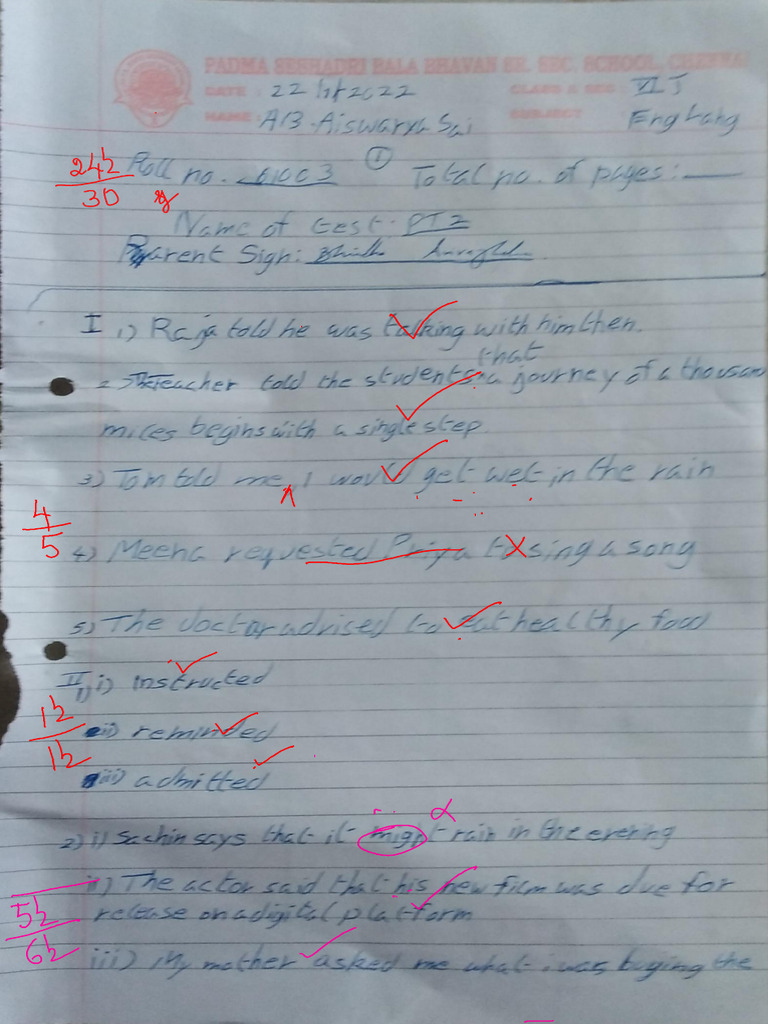 PADMA SESHADRI BALA BHAVAN SR. SEC. SCHOOL, CHENNAI
DATE : 22 2022 CLASS & SEC VI J
NAME: AB. Aiswarya Sai SUBJECT Eng Lang
24½/30 Roll no. ① Total no. of pages:
Name of test: PT2
Parent Sign:
I 1) Raja told he was talking with him then.
that
2. Teacher told the students a journey of a thousand
miles begins with a single step.
3) Tom told me, I would get wet in the rain
4/5
4) Meena requested Priya to sing a song
5) The doctor advised to eat healthy food
II 1) i) instructed
1½/1½
ii) reminded
iii) admitted
2) i) Sachin says that it might rain in the evening
ii) The actor said that his new film was due for
5½/6½
release on a digital platform
iii) My mother asked me what i was buying the